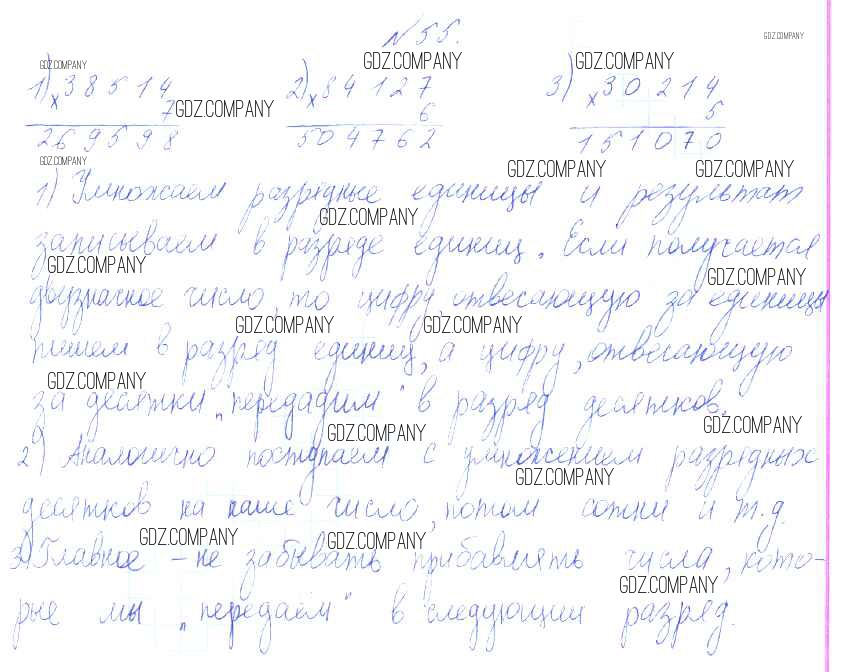 №55.
GDZ.COMPANY
1) ×38514 GDZ.COMPANY 2) ×84127 GDZ.COMPANY 3) ×30214 GDZ.COMPANY
7 GDZ.COMPANY 6 5
269598 504762 151070
GDZ.COMPANY GDZ.COMPANY GDZ.COMPANY
1) Умножаем разрядные единицы и результат
GDZ.COMPANY
записываем в разряде единиц. Если получается
GDZ.COMPANY GDZ.COMPANY
двузначное число, то цифру, отвечающую за единицы
GDZ.COMPANY GDZ.COMPANY
пишем в разряд единиц, а цифру, отвечающую
GDZ.COMPANY
за десятки „передадим" в разряд десятков.
GDZ.COMPANY GDZ.COMPANY
2) Аналогично поступаем с умножением разрядных
GDZ.COMPANY
десятков на наше число, потом сотни и т.д.
GDZ.COMPANY GDZ.COMPANY
3) Главное – не забывать прибавлять числа, кото-
GDZ.COMPANY
рые мы „передаём" в следующий разряд.